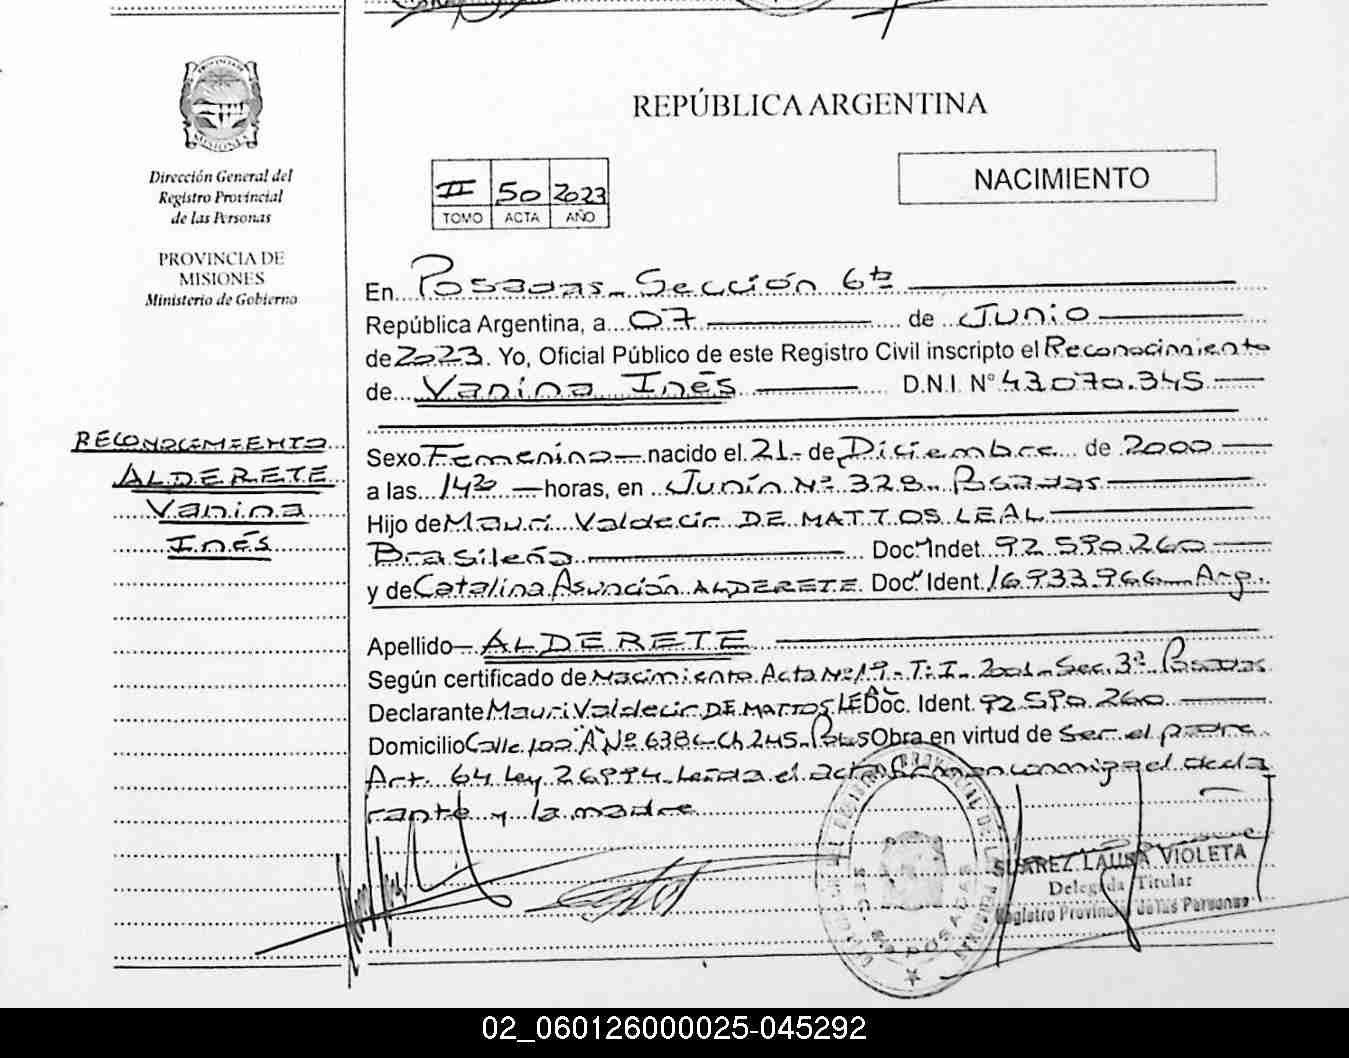 PROVINCIA DE
MISIONES
Dirección General del
Registro Provincial
de las Personas
PROVINCIA DE
MISIONES
Ministerio de Gobierno
REPÚBLICA ARGENTINA
II 50 2023
TOMO ACTA AÑO
NACIMIENTO
En Posadas - Sección 6ta
República Argentina, a 07 de Junio
de 2023. Yo, Oficial Público de este Registro Civil inscripto el Reconocimiento
de Vanina Inés D.N.I. N° 43.070.345
RECONOCIMIENTO
ALDERETE
Vanina
Inés
Sexo Femenino nacido el 21 de Diciembre de 2000
a las 14 horas, en Junín N° 328 - Posadas
Hijo de Mauri Valdecir DE MATTOS LEAL
Brasileña Doc. Indet. 92.590.260
y de Catalina Asunción ALDERETE Doc. Ident. 16.933.966 - Arg.
Apellido ALDERETE
Según certificado de Nacimiento Acta N° 19 - T: I - 2001 - Sec. 3ª Posadas
Declarante Mauri Valdecir DE MATTOS LEAL Doc. Ident. 92.590.260
Domicilio Calle N° 6386 Ch 245 - Obra en virtud de Ser el padre
Art. 64 Ley 26.994 - Leída el acta firman conmigo el decla
rante y la madre
SUAREZ LAURA VIOLETA
Delegada Titular
Registro Provincial de las Personas
POSADAS
02_060126000025-045292